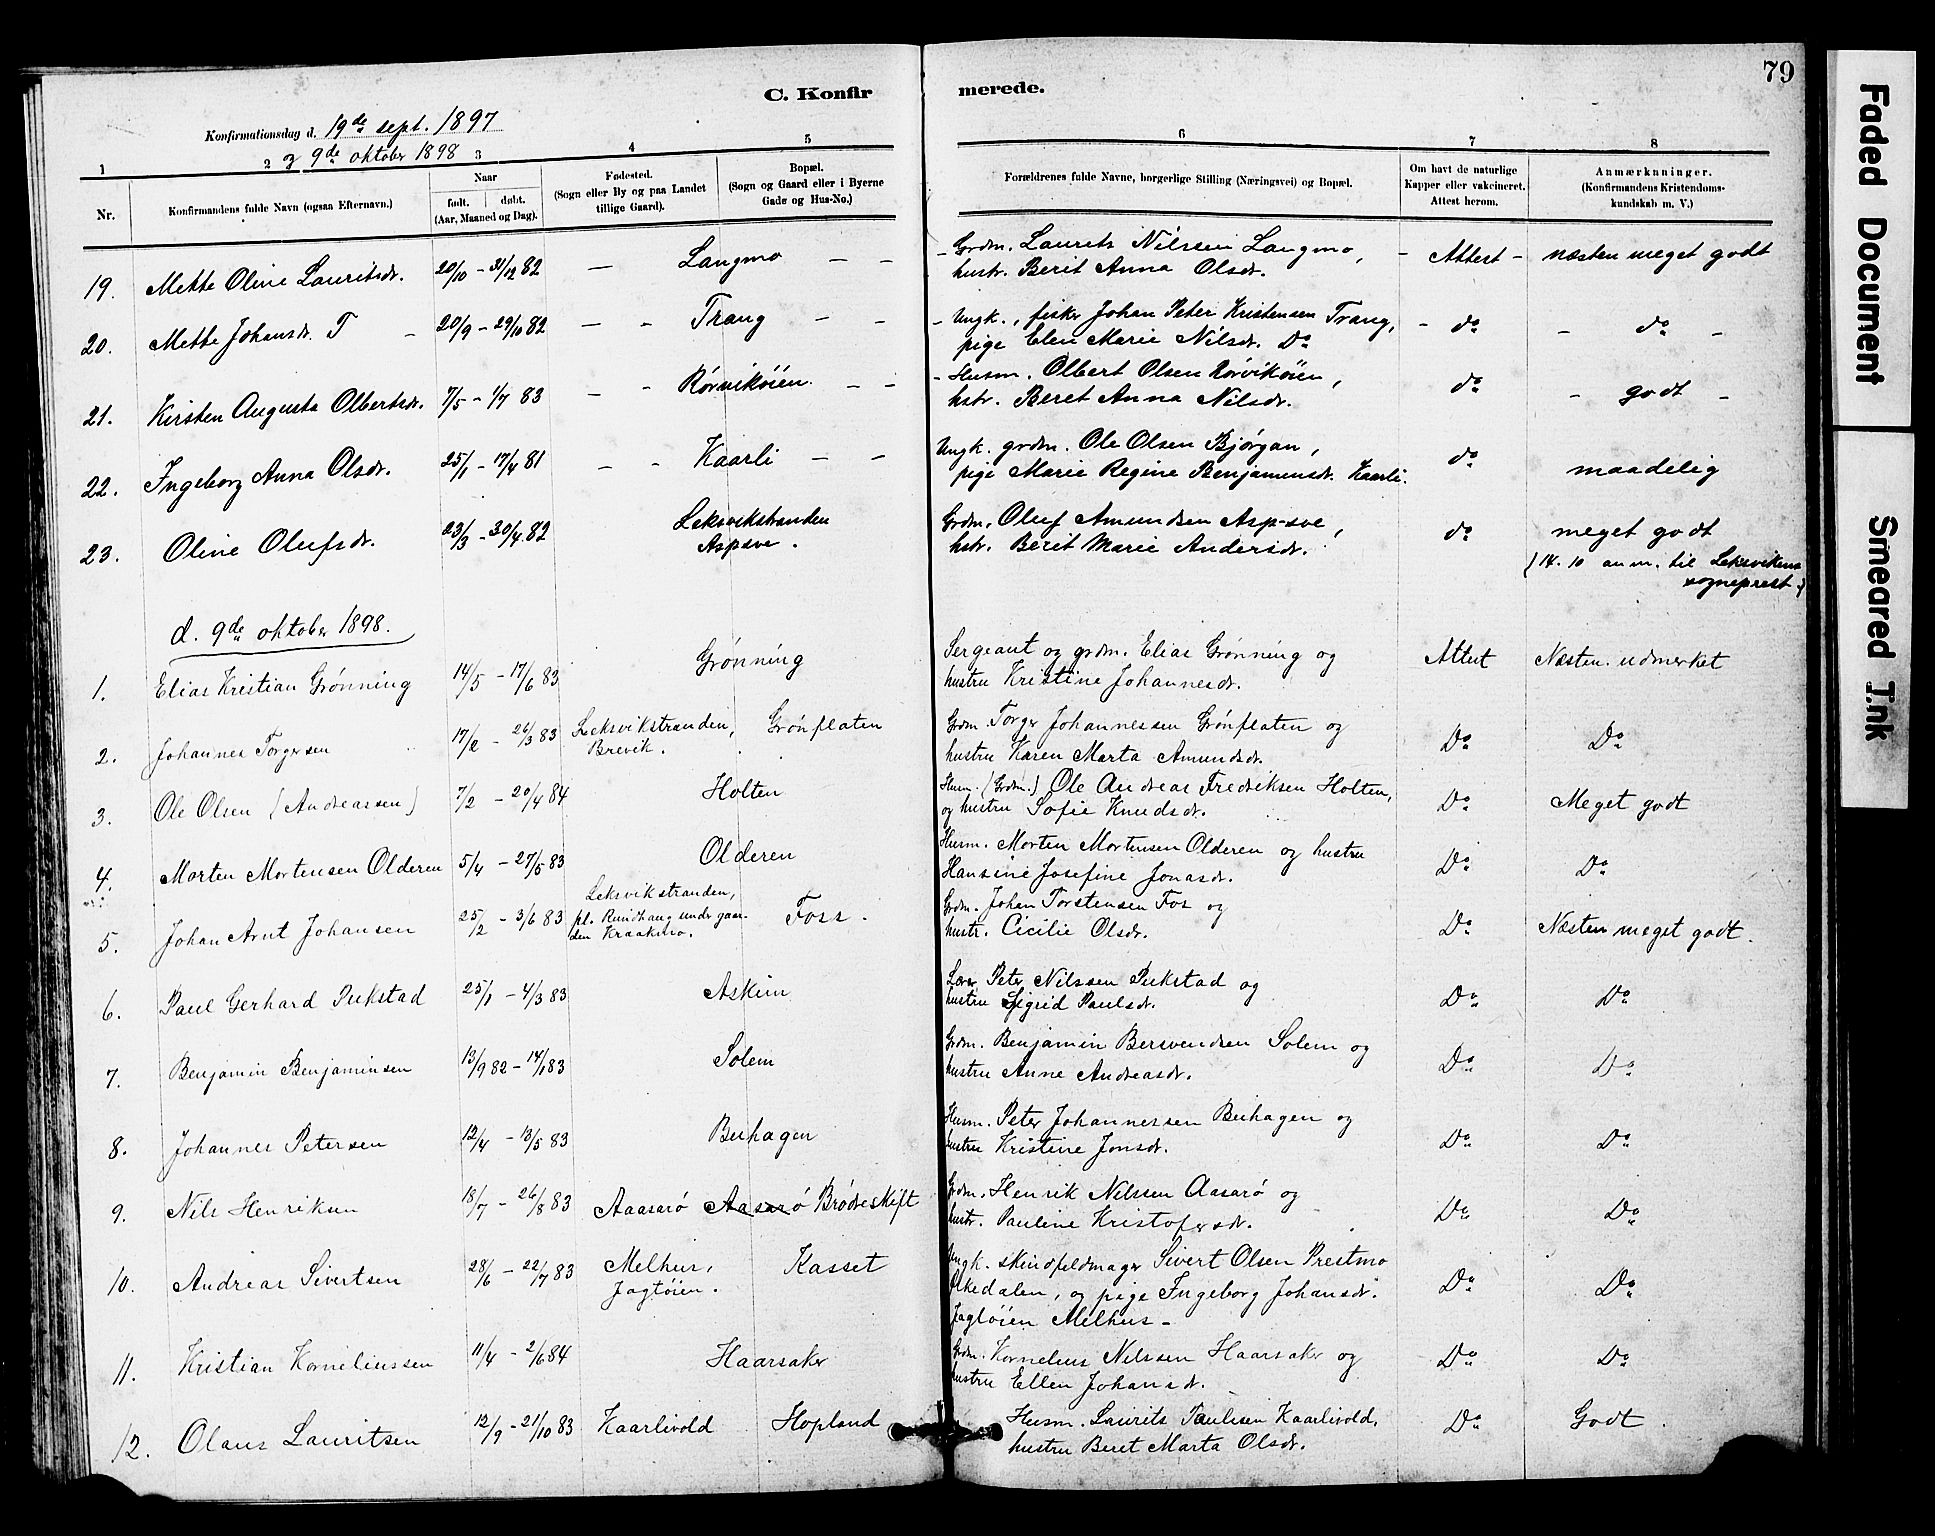 79
C. Konfirmerede.
Konfirmationsdag d. 19de sept. 1897
og 9de oktober 1898
1 2 3 4 5 6 7 8
Nr. Konfirmandens fulde Navn (ogsaa Efternavn.) Naar født. døbt. (Aar, Maaned og Dag). Fødested. (Sogn eller By og paa Landet tillige Gaard). Bopæl. (Sogn og Gaard eller i Byerne Gade og Hus-No.) Forældrenes fulde Navne, borgerlige Stilling (Næringsvei) og Bopæl. Om havt de naturlige Kapper eller vakcineret. Attest herom. Anmærkninger. (Konfirmandens Kristendomskundskab m. V.)
19. Mette Oline Lauritsdr. 20/10 - 31/12 82 — Langmo — — - Grdm. Laurits Nilssen Langmo, hustr. Berit Anna Olsdr. - Attest - næsten meget godt
20. Mette Johansdr. T - 20/9 - 29/10 82 — - Trang — - - Ungk., fisker Johan Peter Kristensen Trang, pige Elen Marie Nilsdr. Do - do - do -
21. Kirsten Augusta Olbertsdr. 7/5 - 1/7 83 — - Rørvikøien. - - - Husm. Olbert Olsen Rørvikøien, hstr. Beret Anna Nilsdr. do - godt -
22. Ingeborg Anna Olsdr. 25/1 - 17/4 81 - - Kaarli — - Ungk. grdm. Ole Olsen Bjørgan, pige Marie Regine Benjaminsdr. Kaarli. do maadelig
23. Oline Olufsdr. 23/3 - 30/4 82 Leksvikstranden Aspsve. Grdm. Oluf Amundsen Asp-sve, hstr. Berit Marie Andersdr. do meget godt
(14. 10 anm. til Leksvikens sogneprest.)
d. 9de oktober 1898.
1. Elias Kristian Grønning 14/5 - 17/6 83 Grønning Sergeant og grdm. Elias Grønning og hustru Kristine Johannesdr. Attest Næsten udmerket
2. Johannes Torgersen 17/2 - 26/3 83 Leksvikstranden, Brevik. Grønflaten Grdm. Torger Johannessen Grønflaten og hustru Karen Marta Amundsdr. Do Do
3. Ole Olsen (Andreassen) 7/2 - 20/4 84 Holten Husm. (Grdm.) Ole Andreas Fredriksen Holten, og hustru Sofie Knudsdr. Do Meget godt
4. Morten Mortensen Olderen 5/4 - 27/5 83 Olderen Husm. Morten Mortensen Olderen og hustru Hansine Josefine Jonasdr. Do Do
5. Johan Arnt Johansen 25/2 - 3/6 83 Leksvikstranden, pl. Rundhaug under gaarden Kraakmo. Foss. Grdm. Johan Torstensen Fos og hustr. Cicilie Olsdr. Do Næsten meget godt.
6. Paul Gerhard Pukstad 25/1 - 4/3 83 Askim Lærer Peter Nilssen Pukstad og hustru Sigrid Paulsdr. Do Do
7. Benjamin Benjaminsen 13/9 82 - 14/1 83 Solem Grdm. Benjamin Bersvendsen Solem og hustru Anne Andreasdr. Do Do
8. Johannes Petersen 12/4 - 13/5 83 Buhagen Husm. Peter Johannessen Buhagen og hustru Kristine Jonsdr. Do Do
9. Nils Henriksen 18/7 - 26/8 83 Aaasarø Aasarø Brødreskift Grdm. Henrik Nilssen Aasarø og hustr. Pauline Kristofersdr. Do Do
10. Andreas Sivertsen 28/6 - 22/7 83 Melhus, Jagtøien. Kasset Ungk. skindfeldmager Sivert Olsen Prestmo Orkedalen, og pige Ingeborg Johansdr. Jagtøien Melhus - Do Do
11. Kristian Korneliussen 11/4 - 2/6 84 Haarsaker Grdm. Kornelius Nilssen Haarsaker og hustru Ellen Johansdr. Do Do
12. Olaus Lauritsen 12/9 - 21/10 83 Kaarlivold Hopland Husm. Laurits Paulsen Kaarlivold, hustru Beret Marta Olsdr. Do Godt.
Faded Document
Smeared Ink